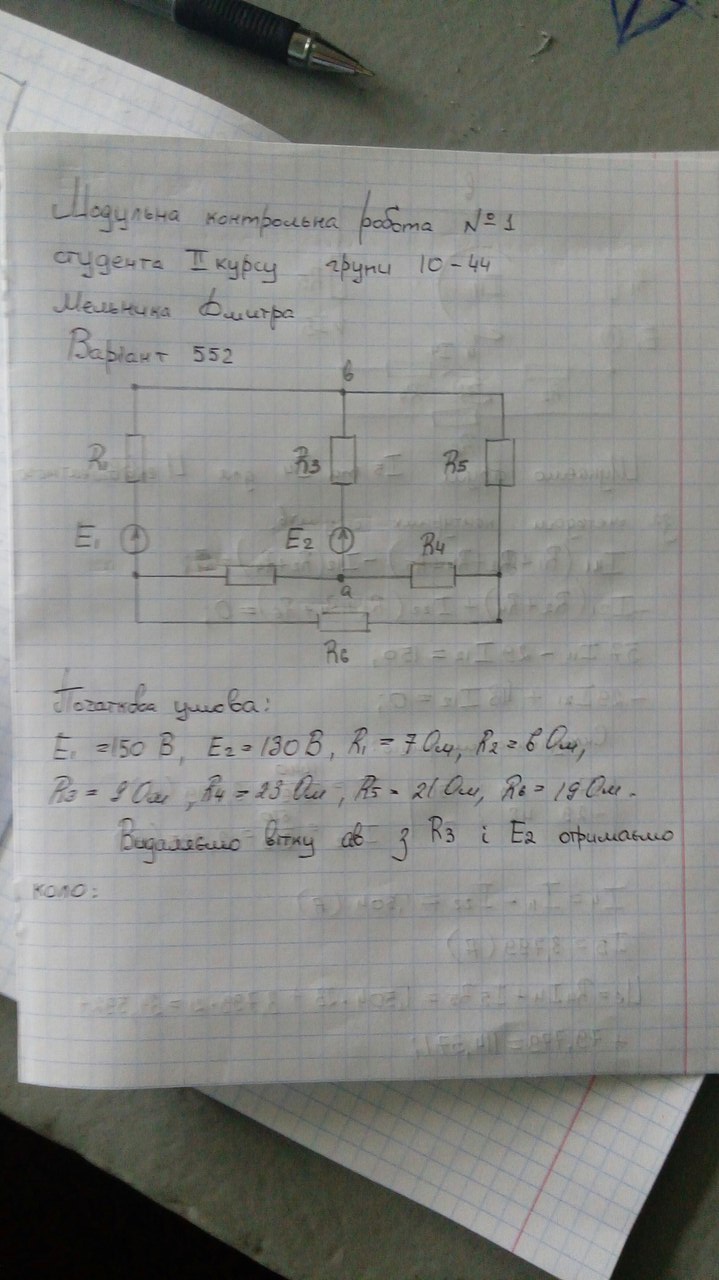 Модульна контрольна робота №1
студента II курсу групи 10-44
Мельника Дмитра
Варіант 552
в
R1 R3 R5
E1 E2 R4
а
R6
Початкова умова:
E1 = 150 В, E2 = 130 В, R1 = 7 Ом, R2 = 6 Ом,
R3 = 9 Ом, R4 = 23 Ом, R5 = 21 Ом, R6 = 19 Ом.
Видаляємо вітку ав з R3 і E2 отримаємо
коло: